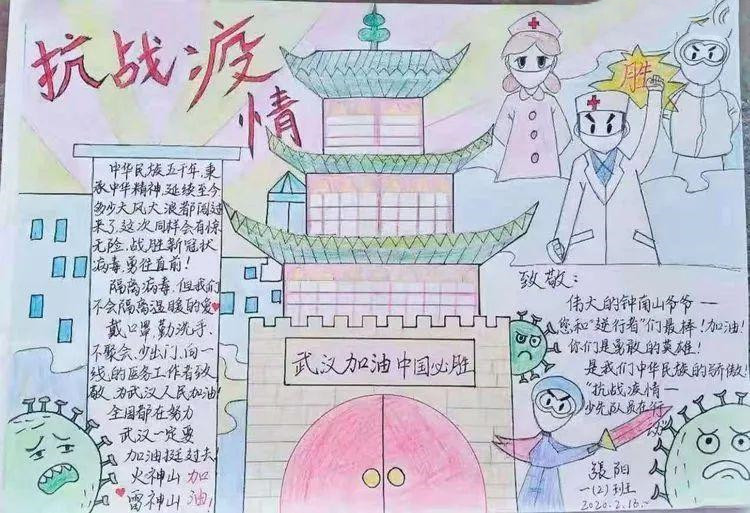 抗战疫
情
中华民族五千年,秉
承中华精神,延续至今
多少大风大浪都闯过
来了,这次同样会有惊
无险,战胜新冠状
病毒,勇往直前!
隔离病毒,但我们
不会隔离温暖的爱♥
戴口罩,勤洗手、
不聚会、少出门、向一
线的医务工作者致
敬,为武汉人民加油!
全国都在努力
武汉一定要
加油挺过去!
火神山 加
雷神山 油!
武汉加油中国必胜
胜
致敬:
伟大的钟南山爷爷一
您和“逆行者”们最棒!加油!
你们是勇敢的英雄!
是我们中华民族的骄傲!
“抗战疫情一
少先队员在行
动”
张阳
一(2)班
2020.2.16.